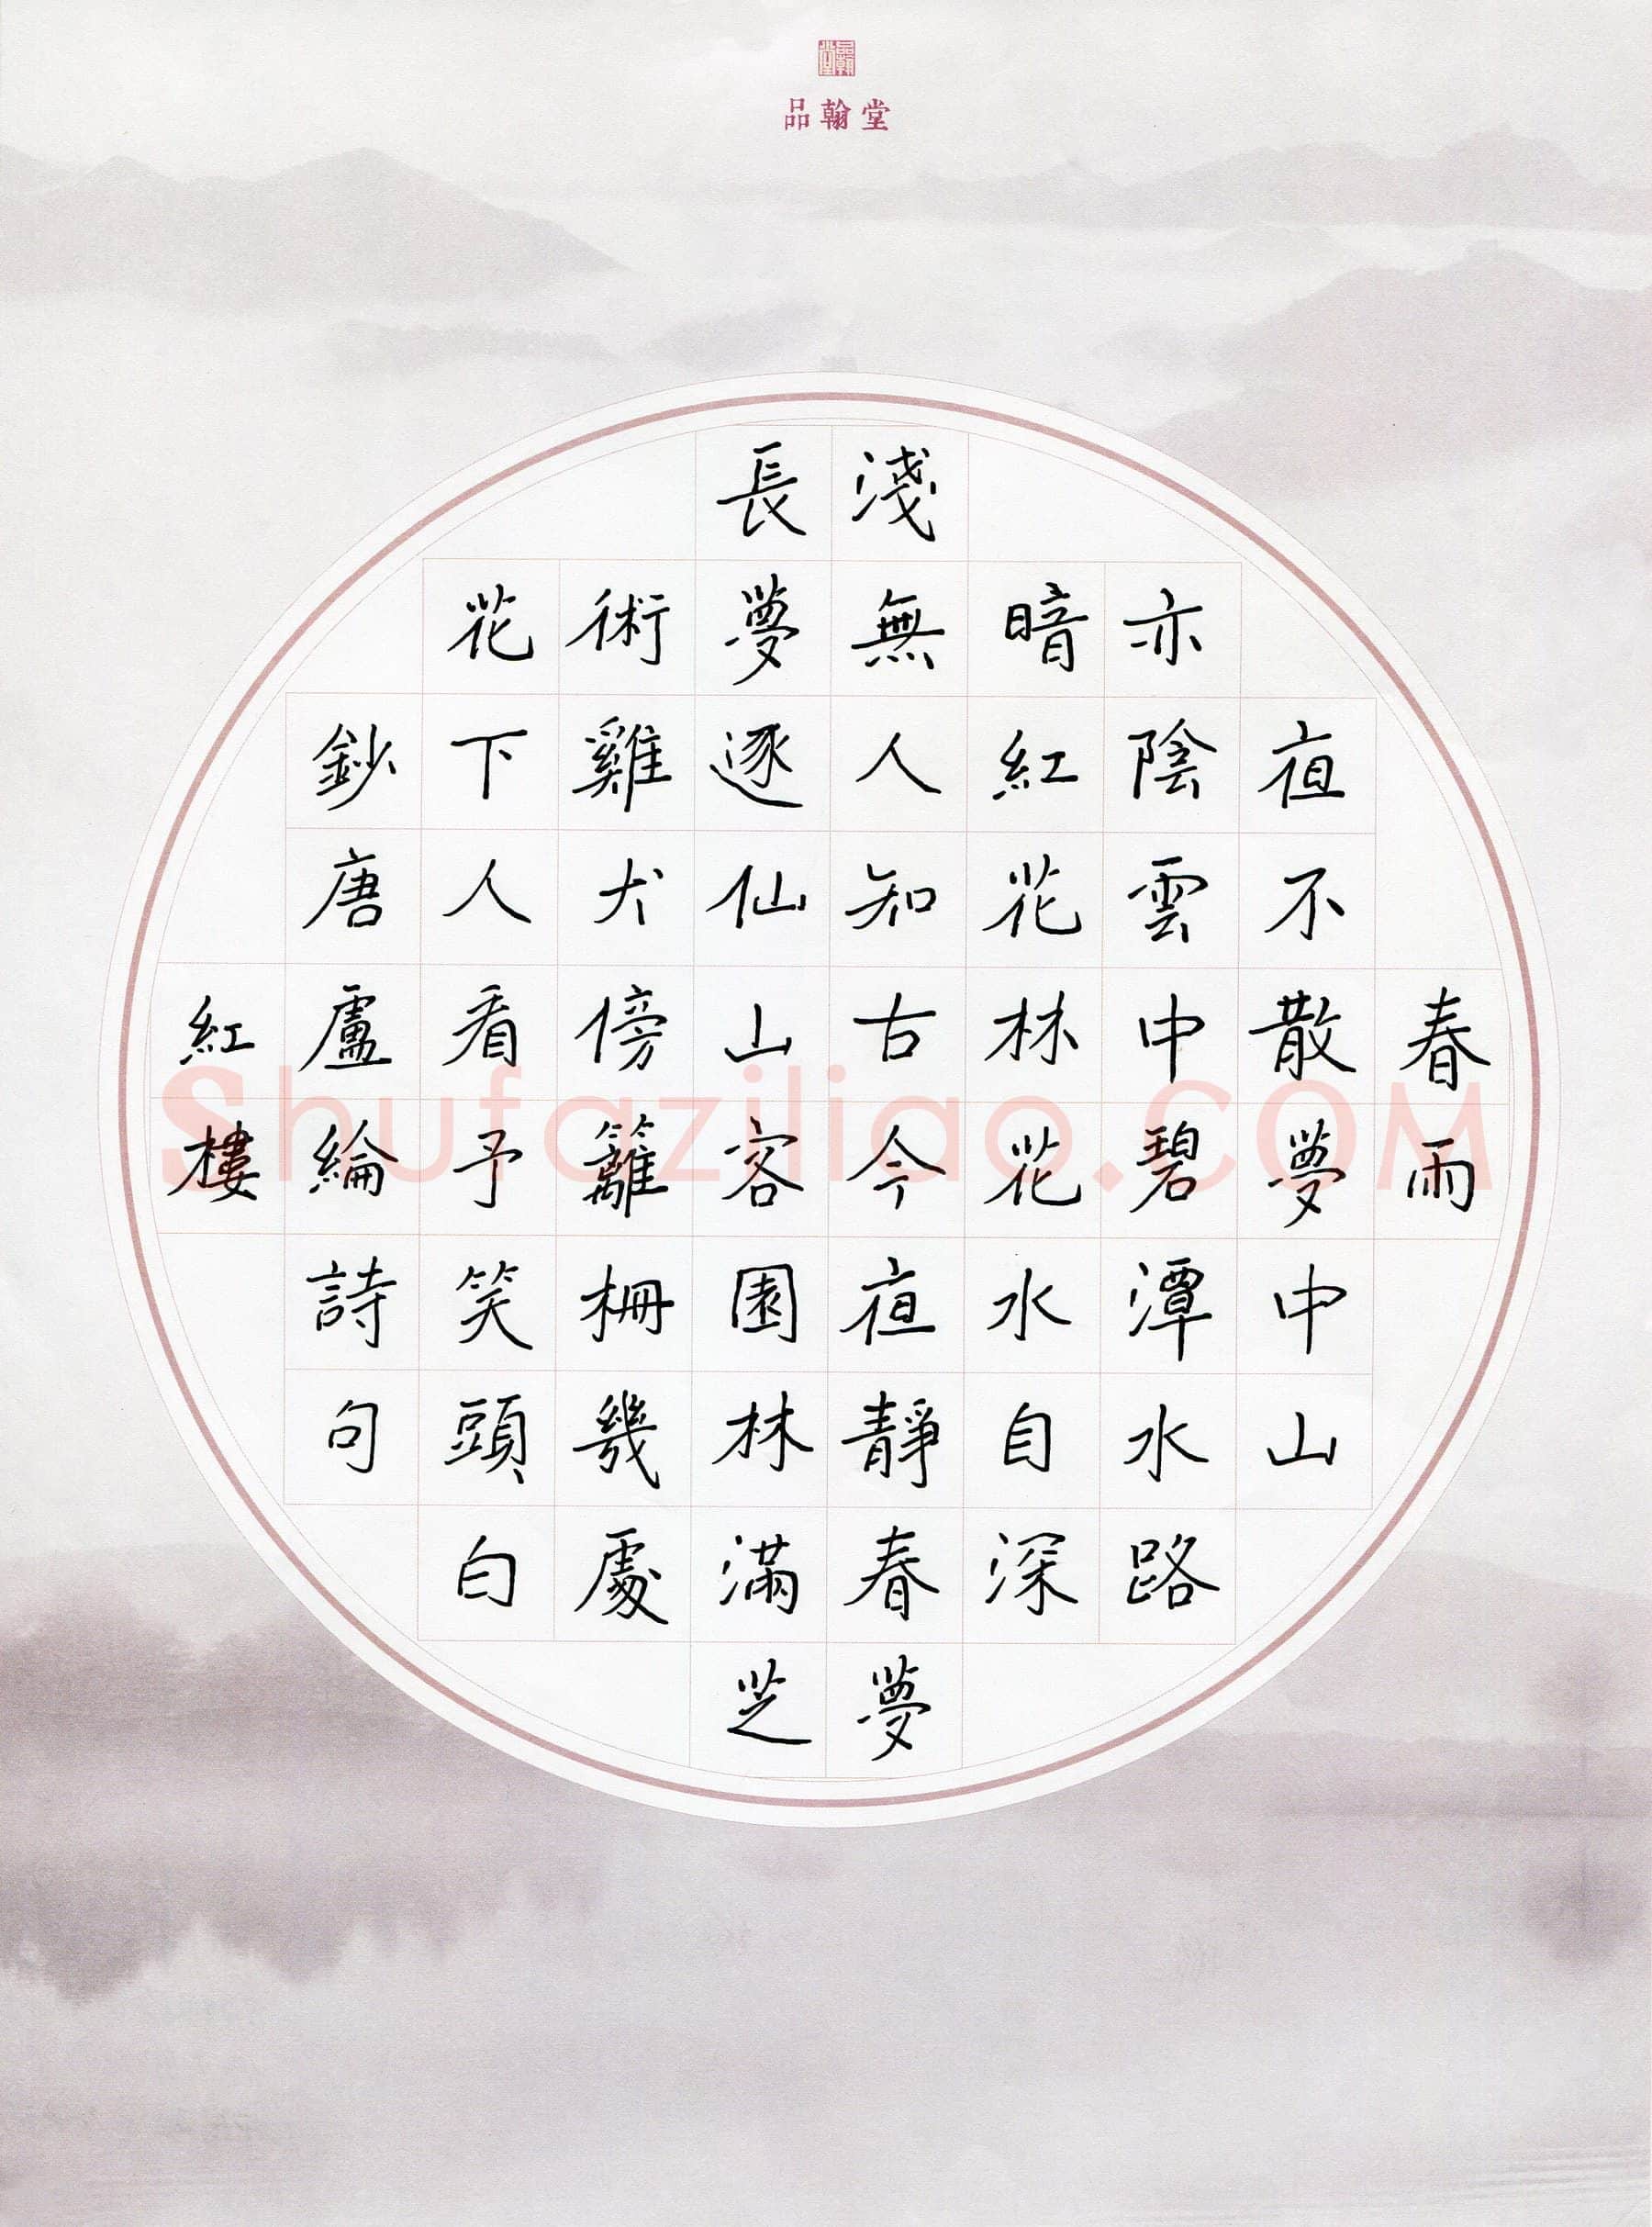 品翰堂
品翰堂
春雨
夜不散夢中山
亦陰雲中碧潭水路
暗紅花林花水自深
淺無人知古今夜靜春夢
長夢逐仙山客園林滿芝
術雞犬傍籬柵幾處
花下人看予笑頭白
鈔唐盧綸詩句
紅樓
Shufaziliao.COM